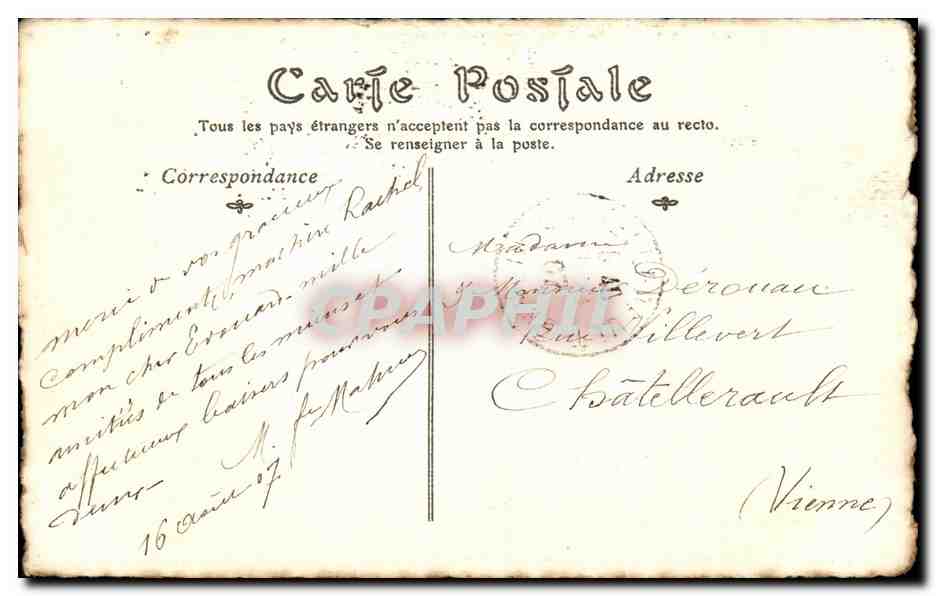 Carte Postale
Tous les pays étrangers n'acceptent pas la correspondance au recto.
Se renseigner à la poste.
Correspondance
Adresse
merci de vos gracieux
compliments, ma chère Rachel
mon cher Edouard, mille
amitiés de tous les miens et
affectueux baisers pour vous
deux
M.
16 Août 07
Madame
Dérouau
Rue Villevert
Châtellerault
(Vienne)
CPAPHIL